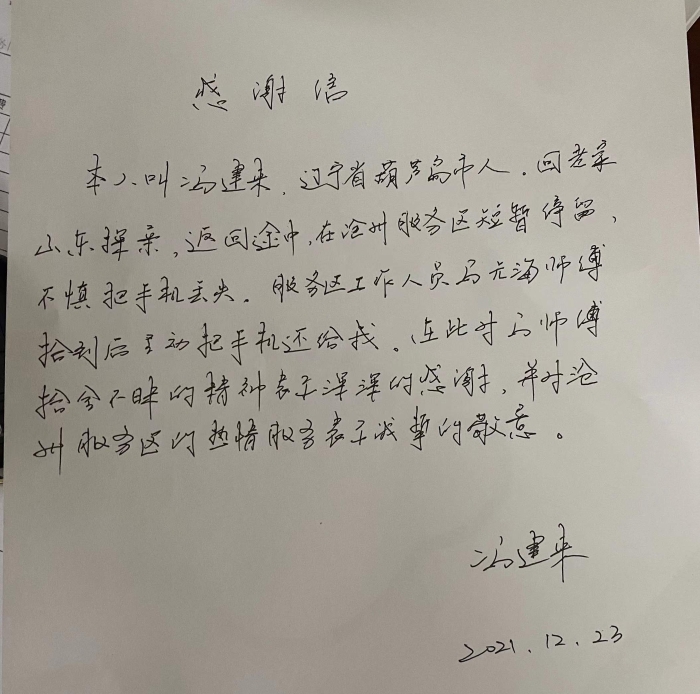 感谢信
本人叫冯建来，辽宁省葫芦岛市人。回老家
山东探亲，返回途中，在沧州服务区短暂停留，
不慎把手机丢失。服务区工作人员马元海师傅
拾到后主动把手机还给我。在此对马师傅
拾金不昧的精神表示深深的感谢，并对沧
州服务区的热情服务表示诚挚的敬意。
冯建来
2021.12.23